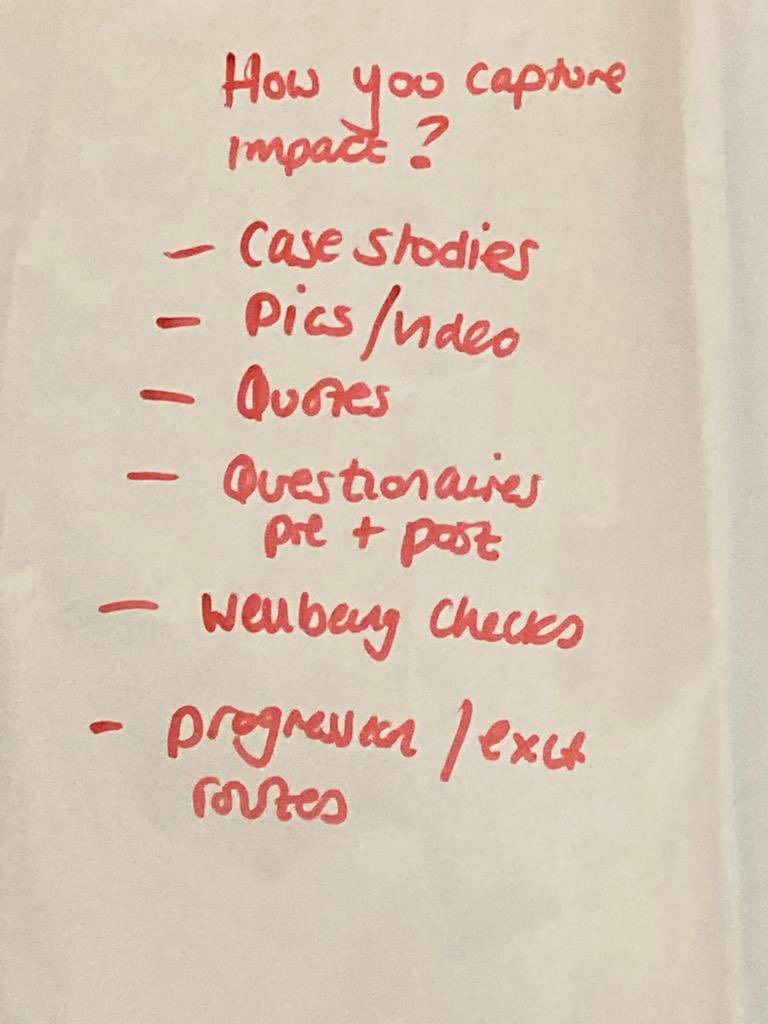 How you capture
impact?
- Case studies
- Pics/video
- Quotes
- Questionaires
pre + post
- Wellbeing checks
- progression / exit
routes